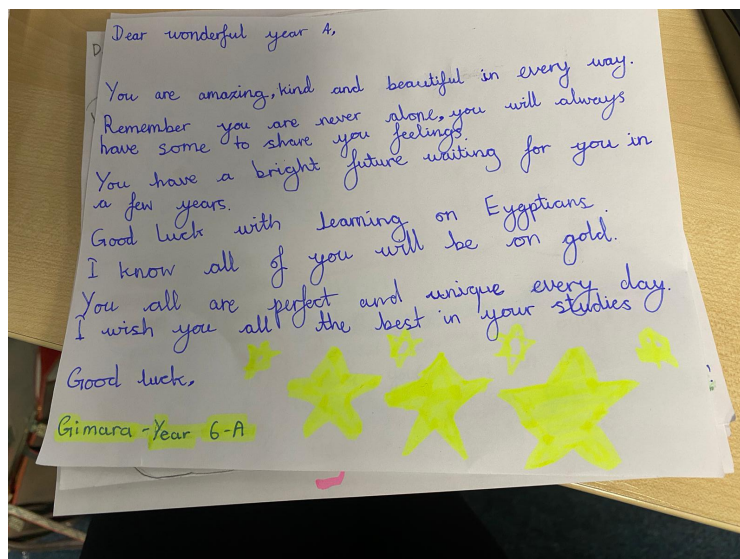 Dear wonderful year 4,
You are amazing, kind and beautiful in every way.
Remember you are never alone, you will always
have some to share you feelings.
You have a bright future waiting for you in
a few years.
Good luck with learning on Eygptians.
I know all of you will be on gold.
You all are perfect and unique every day.
I wish you all the best in your studies
Good luck,
Gimara - Year 6-A
D